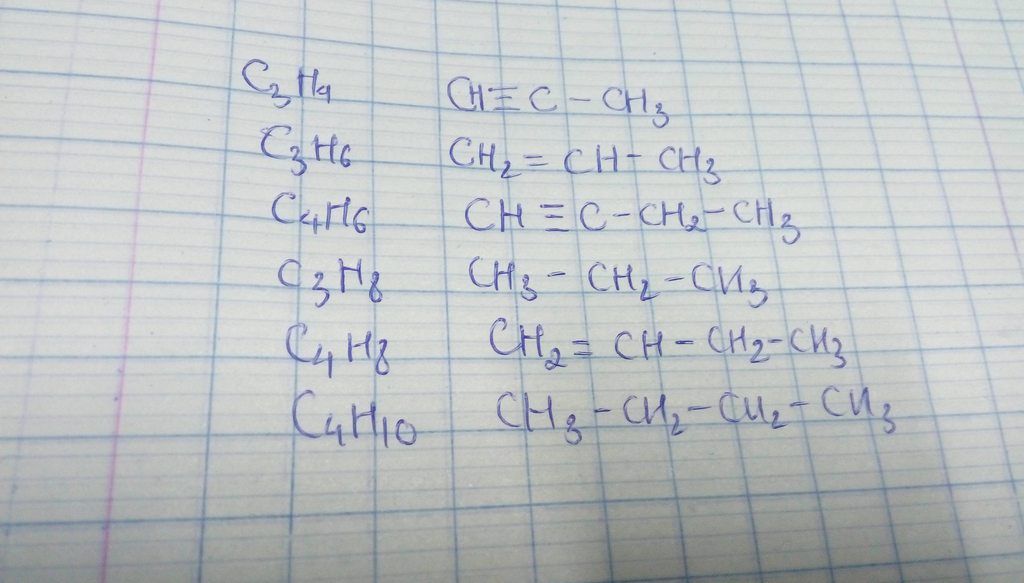 C₃H₄ CH≡C-CH₃
C₃H₆ CH₂=CH-CH₃
C₄H₆ CH≡C-CH₂-CH₃
C₃H₈ CH₃-CH₂-CH₃
C₄H₈ CH₂=CH-CH₂-CH₃
C₄H₁₀ CH₃-CH₂-CH₂-CH₃